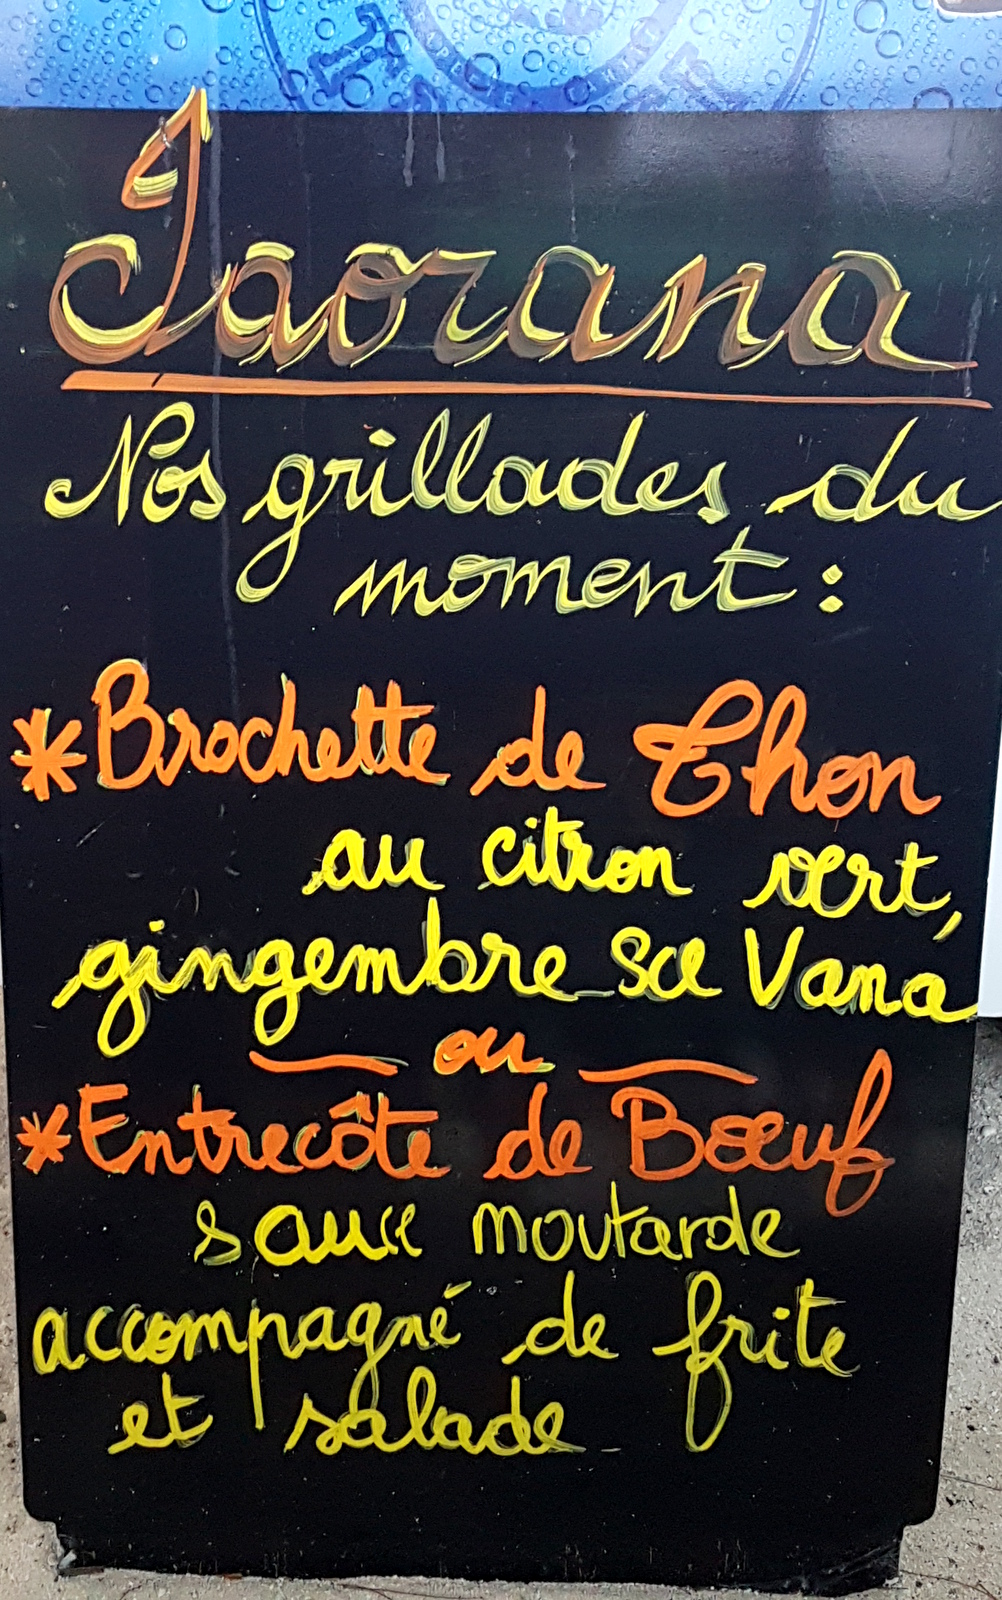 Iaorana
Nos grillades du
moment :
*Brochette de Thon
au citron vert,
gingembre sce Vana
ou
*Entrecôte de Bœuf
sauce moutarde
accompagné de frite
et salade